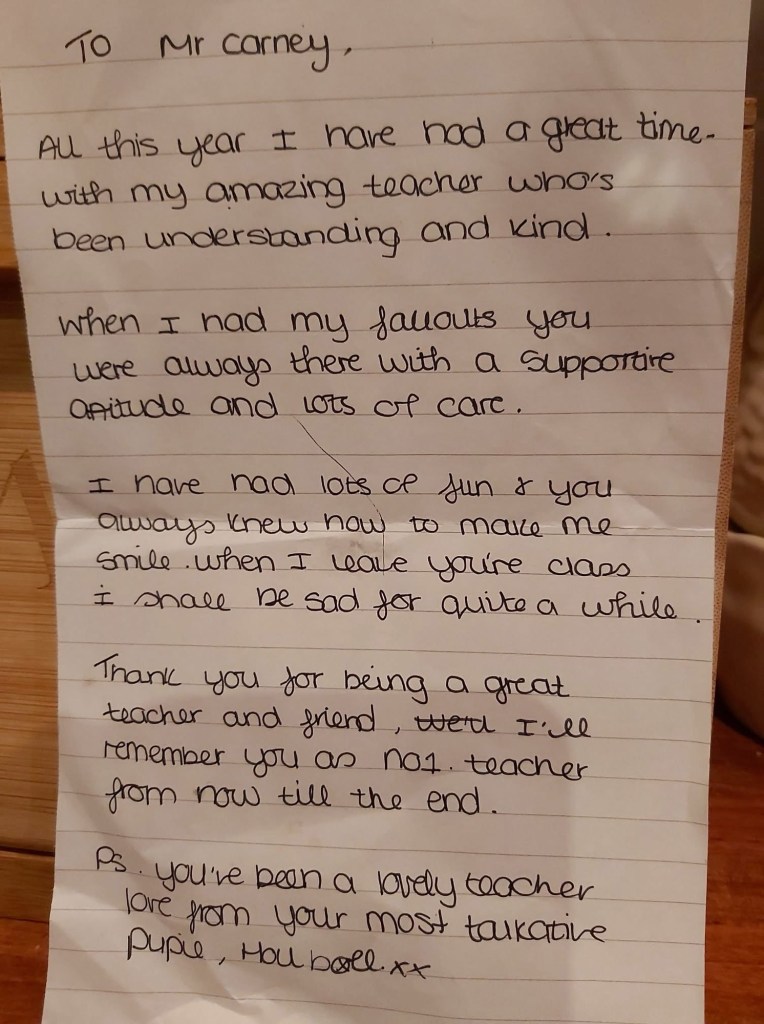 To Mr Carney,
All this year I have had a great time-
with my amazing teacher who's
been understanding and kind.
When I had my fallouts you
were always there with a supportive
attitude and lots of care.
I have had lots of fun & you
always knew how to make me
smile. when I leave you're class
i shall be sad for quite a while.
Thank you for being a great
teacher and friend, I'll
remember you as no1. teacher
from now till the end.
Ps. you've been a lovely teacher
love from your most talkative
pupil, xx